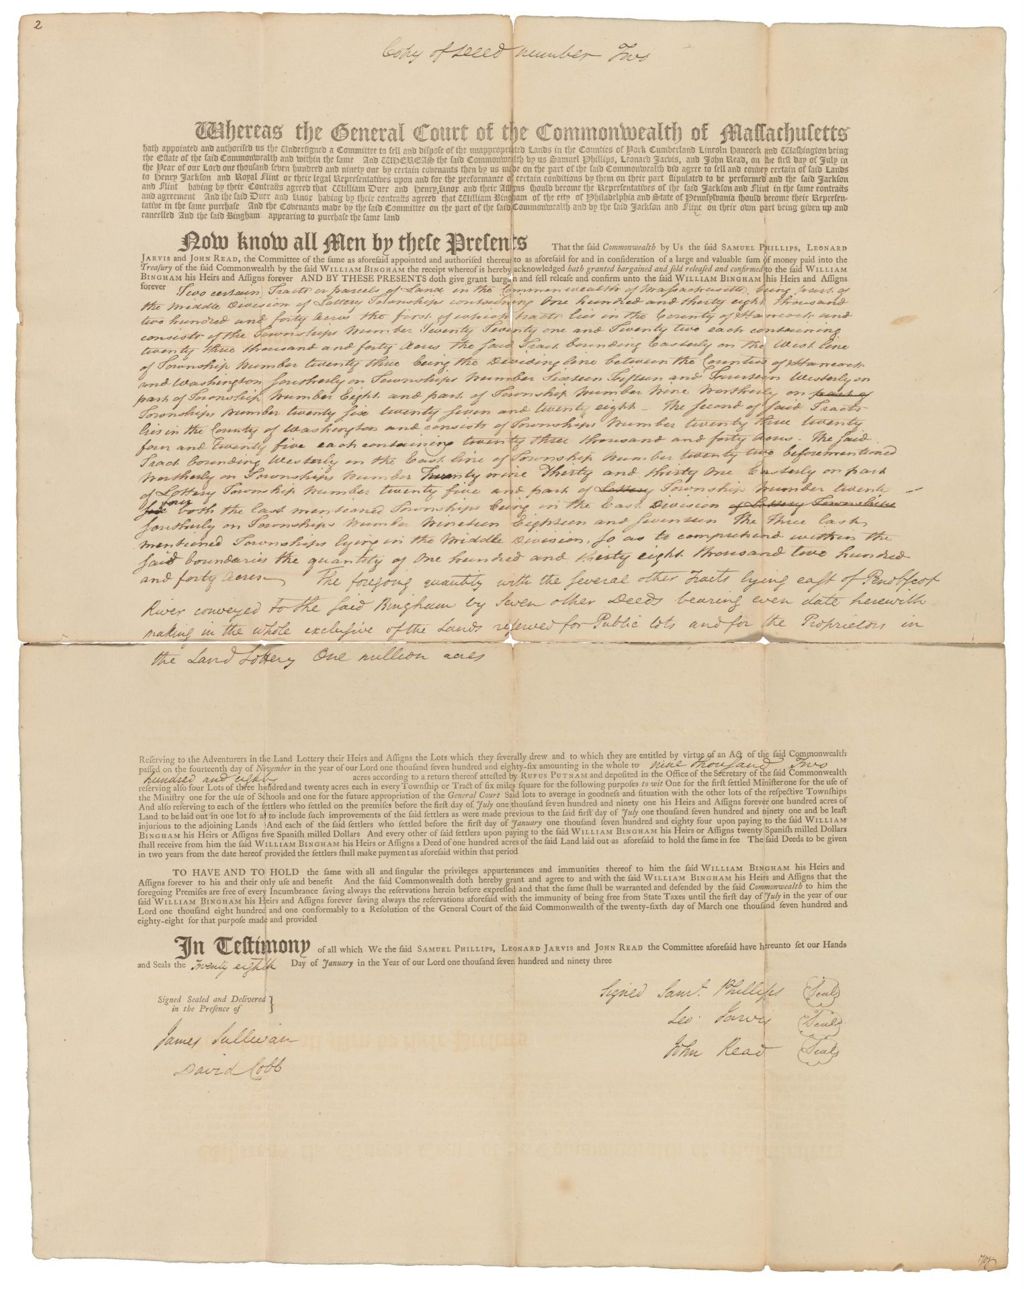 2
Copy of Deed number Two
Whereas the General Court of the Commonwealth of Massachusetts
hath appointed and authorised us the Undersigned a Committee to sell and dispose of the unappropriated Lands in the Counties of York Cumberland Lincoln Hancock and Washington being
the Estate of the said Commonwealth and within the same And WHEREAS the said Commonwealth by us Samuel Phillips, Leonard Jarvis, and John Read, on the first day of July in
the Year of our Lord one thousand seven hundred and ninety one by certain covenants then by us made on the part of the said Commonwealth did agree to sell and convey certain of said Lands
to Henry Jackson and Royal Flint or their legal Representatives upon and for the performance of certain conditions by them on their part stipulated to be performed and the said Jackson
and Flint having by their Contracts agreed that William Duer and Henry Knox and their Assigns should become the Representatives of the said Jackson and Flint in the same contracts
and agreement And the said Duer and Knox having by their contracts agreed that William Bingham of the city of Philadelphia and State of Pennsylvania should become their Represen-
tative in the same purchase And the Covenants made by the said Committee on the part of the said Commonwealth and by the said Jackson and Flint on their own part being given up and
cancelled And the said Bingham appearing to purchase the same land
Now know all Men by these Presents That the said Commonwealth by Us the said SAMUEL PHILLIPS, LEONARD
JARVIS and JOHN READ, the Committee of the same as aforesaid appointed and authorised thereunto as aforesaid for and in consideration of a large and valuable sum of money paid into the
Treasury of the said Commonwealth by the said WILLIAM BINGHAM the receipt whereof is hereby acknowledged hath granted bargained and sold released and confirmed to the said WILLIAM
BINGHAM his Heirs and Assigns forever AND BY THESE PRESENTS doth give grant bargain and sell release and confirm unto the said WILLIAM BINGHAM his Heirs and Assigns
forever Two certain Tracts or parcels of Land in the Commonwealth of Massachusetts, being part of
the Middle Division of Lottery Townships containing One hundred and thirty eight thousand
two hundred and forty Acres the first of which tracts lies in the County of Hancock and
consists of the Townships Number Twenty Twenty one and Twenty two each containing
twenty three thousand and forty Acres the said Tract bounding Easterly on the West line
of Township Number twenty three being the dividing line between the Counties of Hancock
and Washington, Southerly on Townships Number Sixteen Fifteen and Fourteen Westerly on
part of Township Number Eight and part of Township Number Nine Northerly on part of
Townships Number twenty six twenty seven and twenty eight - The second of said Tracts
lies in the County of Washington and consists of Townships Number twenty three twenty
four and Twenty five each containing twenty three thousand and forty Acres. The said
Tract bounding Westerly on the East line of Township Number twenty two beforementioned
Northerly on Townships Number Twenty nine Thirty and thirty One Easterly on part
of Lottery Township Number twenty five and part of Lottery Township Number twenty
four both the last mentioned Townships being in the East Division of Lottery Townships
Southerly on Townships Number Nineteen Eighteen and Seventeen The three last
mentioned Townships lying in the Middle Division, so as to comprehend within the
said boundaries the quantity of One hundred and thirty eight thousand two hundred
and forty Acres The foregoing quantity with the several other Tracts lying east of Penobscot
River conveyed to the said Bingham by Seven other Deeds bearing even date herewith
making in the whole exclusive of the Lands reserved for Public lots and for the Proprietors in
the Land Lottery One million acres
Reserving to the Adventurers in the Land Lottery their Heirs and Assigns the Lots which they severally drew and to which they are entitled by virtue of an Act of the said Commonwealth
passed on the fourteenth day of November in the year of our Lord one thousand seven hundred and eighty-six amounting in the whole to Nine thousand Two
hundred and eighty acres according to a return thereof attested by RUFUS PUTNAM and deposited in the Office of the Secretary of the said Commonwealth
reserving also four Lots of three hundred and twenty acres each in every Township or Tract of six miles square for the following purposes to wit One for the first settled Minister one for the use of
the Ministry one for the use of Schools and one for the future appropriation of the General Court Said lots to average in goodness and situation with the other lots of the respective Townships
And also reserving to each of the settlers who settled on the premises before the first day of July one thousand seven hundred and ninety one his Heirs and Assigns forever one hundred acres of
Land to be laid out in one lot so as to include such improvements of the said settlers as were made previous to the said first day of July one thousand seven hundred and ninety one and be least
injurious to the adjoining Lands And each of the said settlers who settled before the first day of January one thousand seven hundred and eighty four upon paying to the said WILLIAM
BINGHAM his Heirs or Assigns five Spanish milled Dollars And every other of said settlers upon paying to the said WILLIAM BINGHAM his Heirs or Assigns twenty Spanish milled Dollars
shall receive from him the said WILLIAM BINGHAM his Heirs or Assigns a Deed of one hundred acres of the said Land laid out as aforesaid to hold the same in fee The said Deeds to be given
in two years from the date hereof provided the settlers shall make payment as aforesaid within that period
TO HAVE AND TO HOLD the same with all and singular the privileges appurtenances and immunities thereof to him the said WILLIAM BINGHAM his Heirs and
Assigns forever to his and their only use and benefit And the said Commonwealth doth hereby grant and agree to and with the said WILLIAM BINGHAM his Heirs and Assigns that the
foregoing Premises are free of every Incumbrance saving always the reservations herein before expressed and that the same shall be warranted and defended by the said Commonwealth to him the
said WILLIAM BINGHAM his Heirs and Assigns forever saving always the reservations aforesaid with the immunity of being free from State Taxes until the first day of July in the year of our
Lord one thousand eight hundred and one conformably to a Resolution of the General Court of the said Commonwealth of the twenty-sixth day of March one thousand seven hundred and
eighty-eight for that purpose made and provided
In Testimony of all which We the said SAMUEL PHILLIPS, LEONARD JARVIS and JOHN READ the Committee aforesaid have hereunto set our Hands
and Seals the Twenty eighth Day of January in the Year of our Lord one thousand seven hundred and ninety three
Signed Sealed and Delivered
in the Presence of
James Sullivan
David Cobb
Signed Saml. Phillips Seal
Leo Jarvis Seal
John Read Seal